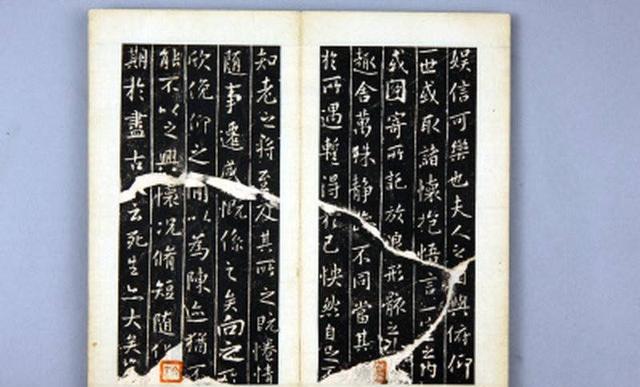 娱信可樂也夫人之與俯仰
一世或取諸懷抱悟言一室之内
或因寄所託放浪形骸之
趣舍萬殊静躁不同當其
於所遇暫得於己怏然自足
知老之將至及其所之既惓情
隨事遷感慨係之矣向之所
欣俛仰之間以為陳迹猶不
能不以之興懷况脩短隨化
期於盡古人云死生亦大矣